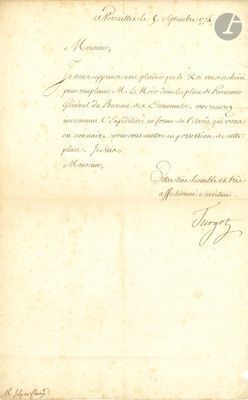 A Versailles le 5. Septembre 1774
Monsieur,
Je vous apprens avec plaisir que le Roi vous a choisi
pour remplacer M. Le Roi dans la place de Premier
Général du Bureau des
l'Expédition en forme de l'arrêt qui vous
est nécessaire pour vous mettre en possession de cette
place. Je suis
Monsieur,
Votre très humble et très
affectionné serviteur
Turgot
M.